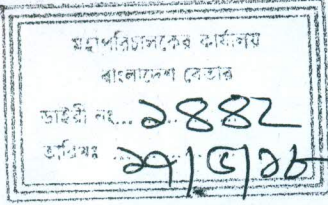 মহাপরিচালকের কার্যালয়
বাংলাদেশ বেতার
ডাইরী নং... ১৪৪২
তারিখঃ ... ১৭/৫/১৮